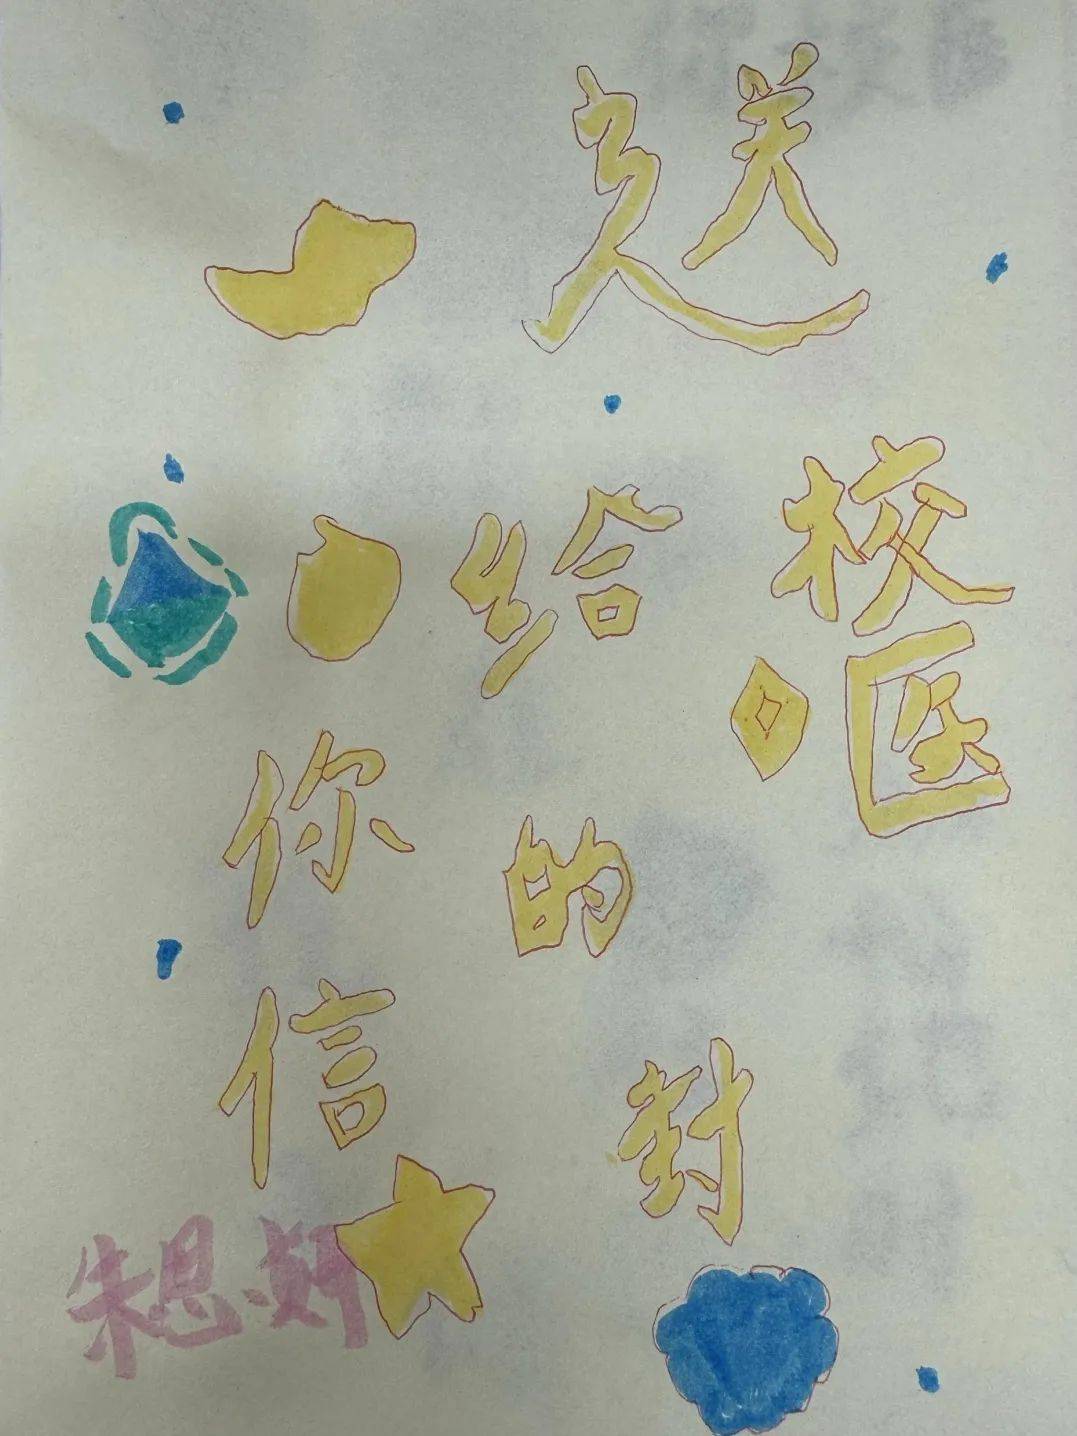 送
给校医
你的
信封
朱思妍